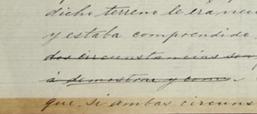 dicho terreno le era
y estaba comprendido
dos circunstancias son
á demostrar y como
que si ambas circuns